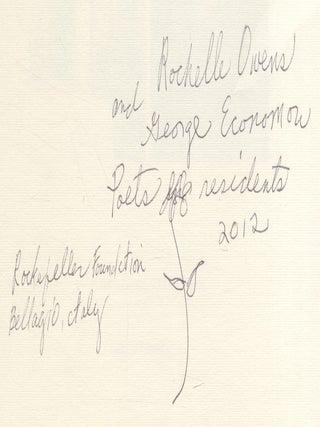 Rochelle Owens
and
George Economou
Poets residents
2012
Rockefeller Foundation
Bellagio, Italy